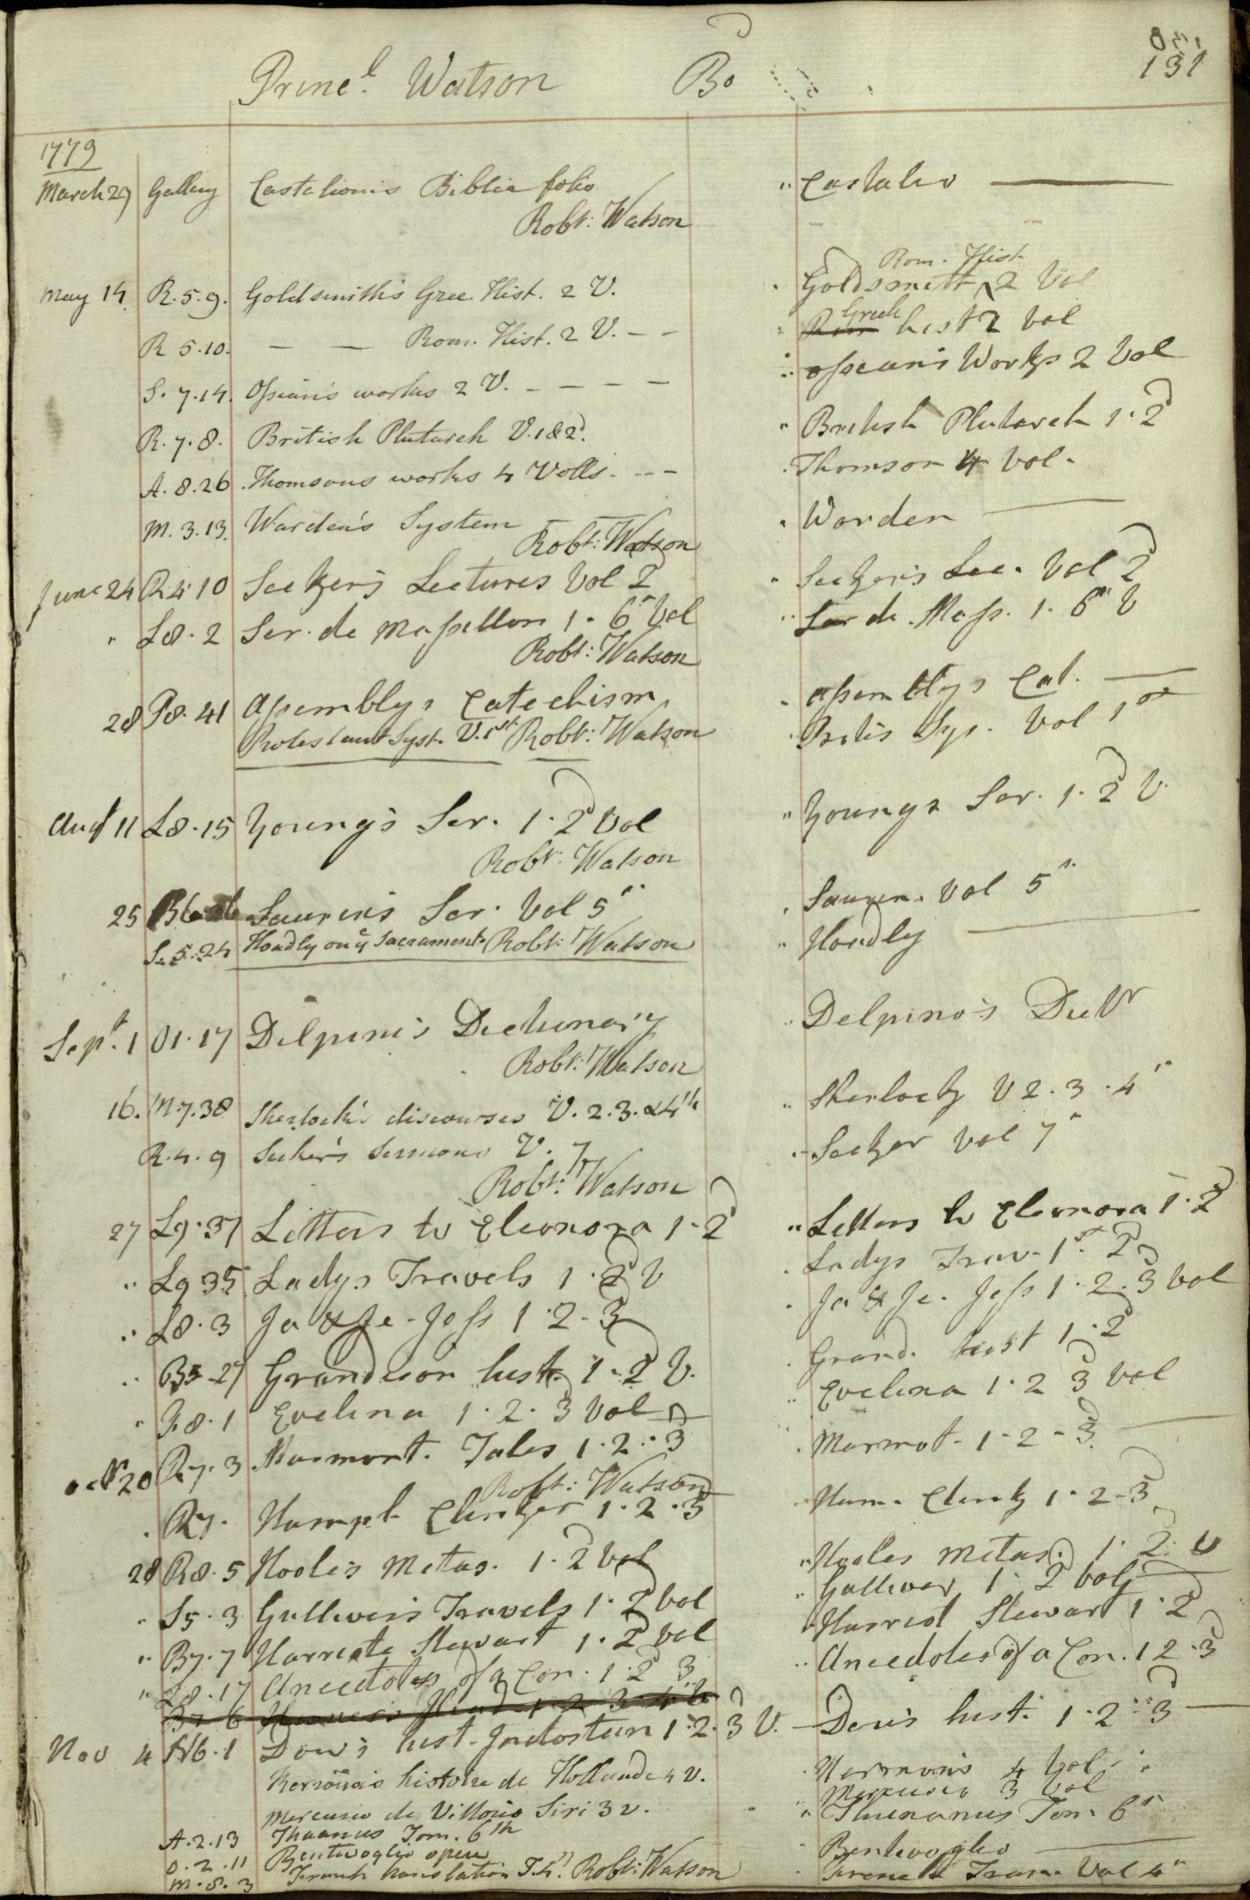 Princ.l Watson Bo
131
1779
March 29 Gallery Castalionis Biblia folio " Castalio
Robt: Watson
May 14 R.5.9. Goldsmith's Gree. Hist. 2 V. Goldsmith Rom. Hist. 2 Vol
R 5.10. — — Rom. Hist. 2 V. — — Greek hist 2 Vol
S. 7.14. Ossian's works 2 V. — — — — ossean's Works 2 Vol
R.7.8. British Plutarch V. 1 & 2d. " British Plutarch 1. 2d
A.8.26. Thomsons works 4 Volls. - - - Thomson 4 Vol.
M.3.13. Warden's System " Worden
Robt: Watson
June 24 R4.10 Seckers Lectures Vol 2d Seckers Lec. Vol 2d
" L8.2 Ser. de Massillon 1. 6" Vol " Ser de Mass. 1. 6" V
Robt: Watson
28 P8.41 assemblys Catechism assemblys Cat.
Protestant Syst. V. 1st Robt: Watson Protis Sys. Vol 1st
Augt 11 L8.15 Young's Ser. 1. 2d Vol " Youngs Ser. 1. 2d V.
Robt. Watson
25 Saurin's Ser. Vol 5" Saurin. Vol 5"
S.5.24 Hoadly on ye Sacrament Robt: Watson " Hoadly
Sept. 1 O1.17 Delpini's Dictionary Delpino's Dictr
Robt: Watson
16. M.7.38 Sherlock's discourses V. 2.3. & 4th " Sherlock V 2.3.4"
R.4.9 Secker's Sermons V. 7 Secker Vol 7"
Robt: Watson
27 L9.37 Letters to Eleonora 1. 2d " Letters to Eleonora 1. 2d
" L9 35 Ladys Travels 1. 2d V Ladys Trav. 1st 2d
" L8.3 Ja & Je. Jess 1. 2. 3d Ja & Je. Jess 1. 2. 3 Vol
" B5.27 Grandison hist. 1. 2d V. Grand. hist 1. 2d
" 8.1 Evelina 1. 2. 3 Vol Evelina 1. 2 3 Vol
R7.3 Marmont. Tales 1. 2. 3d Marmot. 1. 2. 3d
octr 20 Robt: Watson
R7. Humph Clinker 1. 2. 3d Hum. Clink 1. 2. 3d
28 R8.5 Hooles Metas. 1. 2d Vol " Hooles Metas. 1. 2d V
" S5.3 Gullivers Travels 1. 2d Vol " Gulliver 1. 2d Vol
" B7.7 Harriote Stewart 1. 2d Vol Harriot Stewart 1. 2d
" 8.17 Anecdotes of a Con. 1. 2d 3 " Anecdotes of a Con. 1 2. 3d
Nov 4 N6.1 Dow's hist. Indostan 1. 2. 3d V. Dow's hist. 1. 2. 3d
histoire de Hollande 4 V. 4 Vol.
Mercurio de Vittorio Siri 3 v. Mercurio 3 Vol
A.2.13 Thuanus Tom. 6th " Thuanus Tom. 6"
O.2.11 Bentivoglio opere Bentivoglio
M.8.3 French translation T.4. Robt: Watson French Tran. Vol 4"